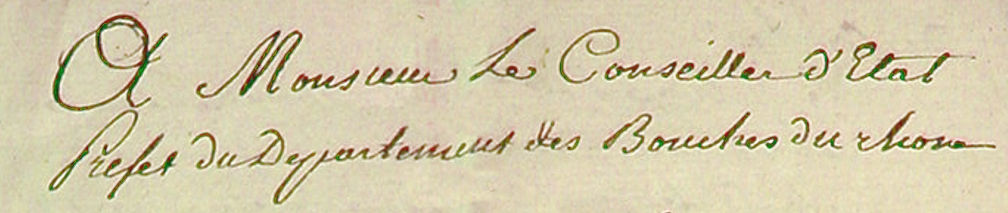 A Monsieur Le Conseiller d'Etat
Prefet du Departement des Bouches du rhone